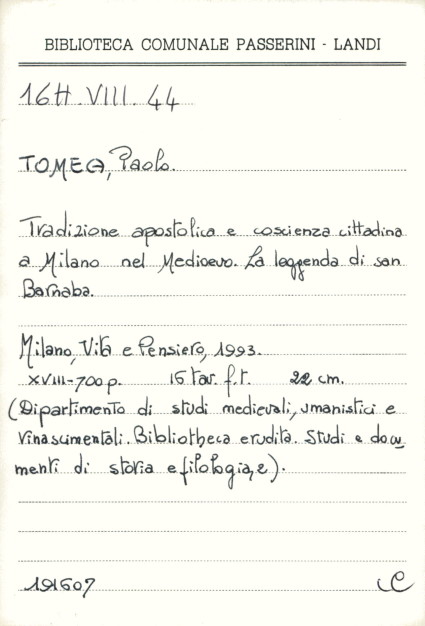 BIBLIOTECA COMUNALE PASSERINI - LANDI
16H.VIII.44
TOMEA, Paolo.
Tradizione apostolica e coscienza cittadina
a Milano nel Medioevo. La leggenda di san
Barnaba.
Milano, Vita e Pensiero, 1993.
XVIII-700 p. 16 tav. f.t. 22 cm.
(Dipartimento di studi medievali, umanistici e
rinascimentali. Bibliotheca erudita. Studi e docu
menti di storia e filologia, 2).
191607